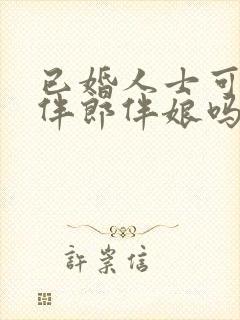 已婚人士可
伴郎伴娘吗
許崇信